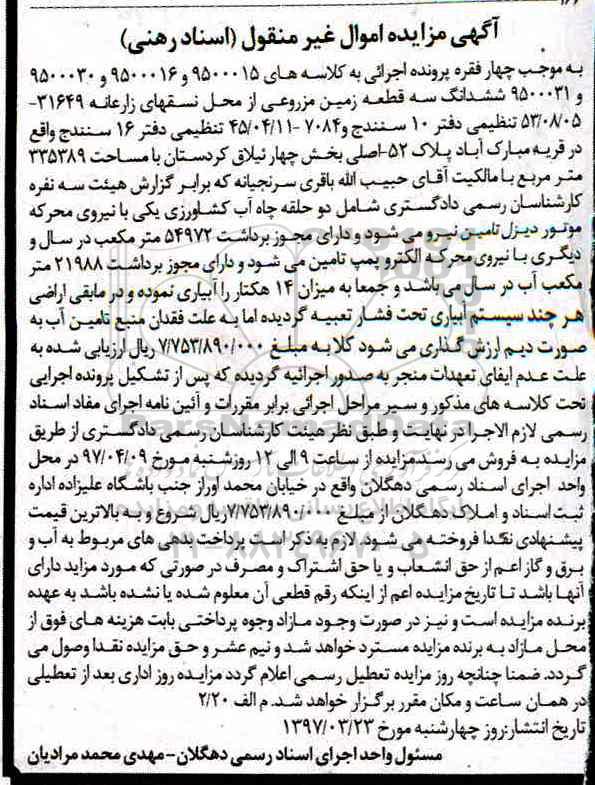 آگهی مزایده اموال غیر منقول (اسناد رهنی)
به موجب چهار فقره پرونده اجرائی به کلاسه های ۹۵۰۰۰۱۵ و ۹۵۰۰۰۱۶ و ۹۵۰۰۰۳۰
و ۹۵۰۰۰۳۱ ششدانگ سه قطعه زمین مزروعی از محل نسقهای زارعانه ۳۱۶۴۹-
۵۳/۰۸/۰۵ تنظیمی دفتر ۱۰ سنندج و ۷۰۸۴ -۴۵/۰۴/۱۱ تنظیمی دفتر ۱۶ سنندج واقع
در قریه مبارک آباد پلاک ۵۲-اصلی بخش چهار ئیلاق کردستان با مساحت ۳۳۵۳۸۹
متر مربع با مالکیت آقای حبیب الله باقری سرنجیانه که برابر گزارش هیئت سه نفره
کارشناسان رسمی دادگستری شامل دو حلقه چاه آب کشاورزی یکی با نیروی محرکه
موتور دیزل تامین نیرو می شود و دارای مجوز برداشت ۵۴۹۷۲ متر مکعب در سال و
دیگری با نیروی محرکه الکترو پمپ تامین می شود و دارای مجوز برداشت ۲۱۹۸۸ متر
مکعب آب در سال می باشد و جمعا به میزان ۱۴ هکتار را آبیاری نموده و در مابقی اراضی
هر چند سیستم آبیاری تحت فشار تعبیه گردیده اما به علت فقدان منبع تامین آب به
صورت دیم ارزش گذاری می شود کلا به مبلغ ۷/۷۵۳/۸۹۰/۰۰۰ ریال ارزیابی شده به
علت عدم ایفای تعهدات منجر به صدور اجرائیه گردیده که پس از تشکیل پرونده اجرایی
تحت کلاسه های مذکور و سیر مراحل اجرائی برابر مقررات و آئین نامه اجرای مفاد اسناد
رسمی لازم الاجرا در نهایت و طبق نظر هیئت کارشناسان رسمی دادگستری از طریق
مزایده به فروش می رسد مزایده از ساعت ۹ الی ۱۲ روز شنبه مورخ ۹۷/۰۴/۰۹ در محل
واحد اجرای اسناد رسمی دهگلان واقع در خیابان محمد اوراز جنب باشگاه علیزاده اداره
ثبت اسناد و املاک دهگلان از مبلغ ۷/۷۵۳/۸۹۰/۰۰۰ ریال شروع و به بالاترین قیمت
پیشنهادی نقدا فروخته می شود. لازم به ذکر است پرداخت بدهی های مربوط به آب و
برق و گاز اعم از حق انشعاب و یا حق اشتراک و مصرف در صورتی که مورد مزاید دارای
آنها باشد تا تاریخ مزایده اعم از اینکه رقم قطعی آن معلوم شده یا نشده باشد به عهده
برنده مزایده است و نیز در صورت وجود مازاد وجوه پرداختی بابت هزینه های فوق از
محل مازاد به برنده مزایده مسترد خواهد شد و نیم عشر و حق مزایده نقدا وصول می
گردد. ضمنا چنانچه روز مزایده تعطیل رسمی اعلام گردد مزایده روز اداری بعد از تعطیلی
در همان ساعت و مکان مقرر برگزار خواهد شد. م الف ۲/۲۰
تاریخ انتشار:روز چهارشنبه مورخ ۱۳۹۷/۰۳/۲۳
مسئول واحد اجرای اسناد رسمی دهگلان-مهدی محمد مرادیان
ParsNamadData